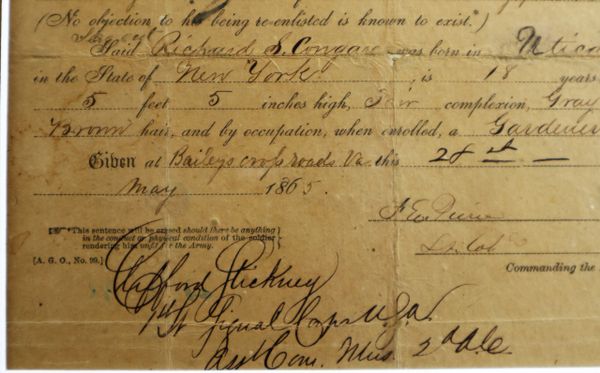 (No objection to his being re-enlisted is known to exist.)
Said Richard S. Congar was born in Utica
in the State of New York, is 18 years
5 feet 5 inches high, Fair complexion, Gray
Brown hair, and by occupation, when enrolled, a Gardener
Given at Baileys cross roads Va this 28th
May 1865.
☞ This sentence will be erased should there be anything
in the conduct or physical condition of the soldier
rendering him unfit for the Army.
[A. G. O., No. 99.]
Lt. Col
Commanding the
Clifford Stickney
1st Lt Signal Corps U.S.A.
Com. Mus. 2d